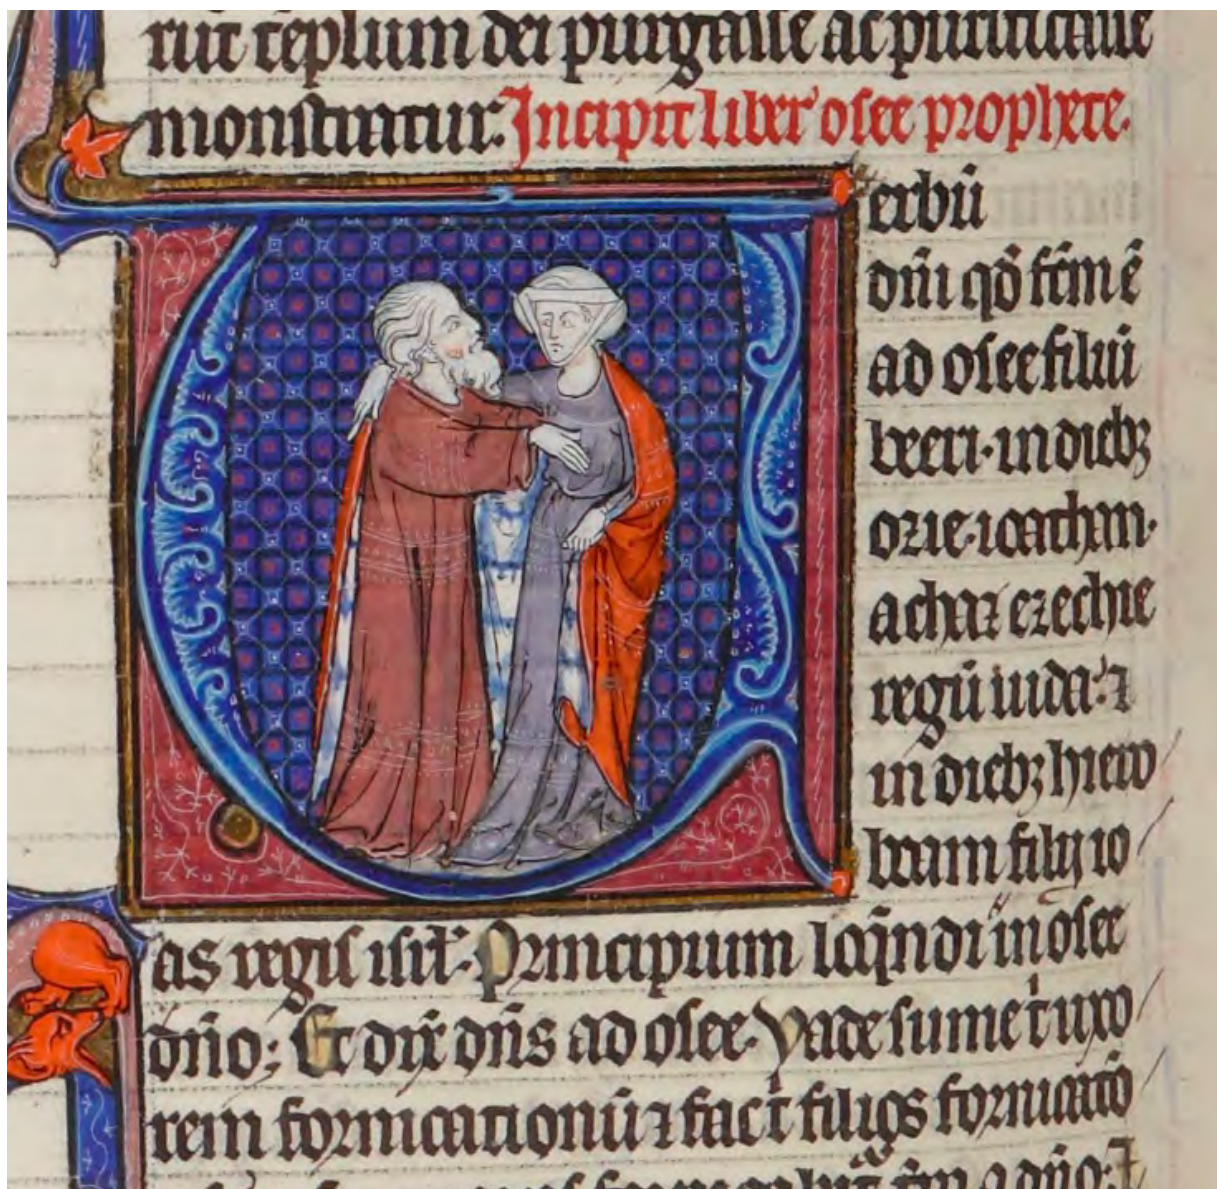 rūt tēplum dei purgasse ac purificasse
monstratur. Incipit liber osee prophete.
erbū
dn̄i qd̄ fc̄m ē
ad osee filiū
beeri. in dieb;
ozie. ioathan.
achaz ezechie
regū iuda. ⁊
in dieb; hiero
boam filij io
as regis isrl̄. Principium loq̄ndi in osee
dn̄o; Et dix̄ dn̄s ad osee. Vade sume t uxo
rem fornicationū ⁊ fac t filios fornicatio